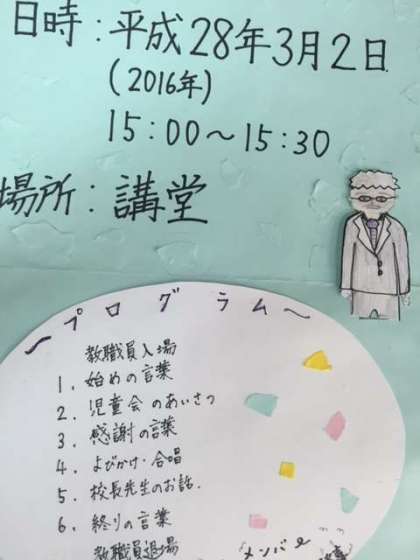 日時:平成28年3月2日
(2016年)
15:00～15:30
場所:講堂
～プログラム～
教職員入場
1. 始めの言葉
2. 児童会のあいさつ
3. 感謝の言葉
4. よびかけ・合唱
5. 校長先生のお話.
6. 終りの言葉
教職員退場
メンバー